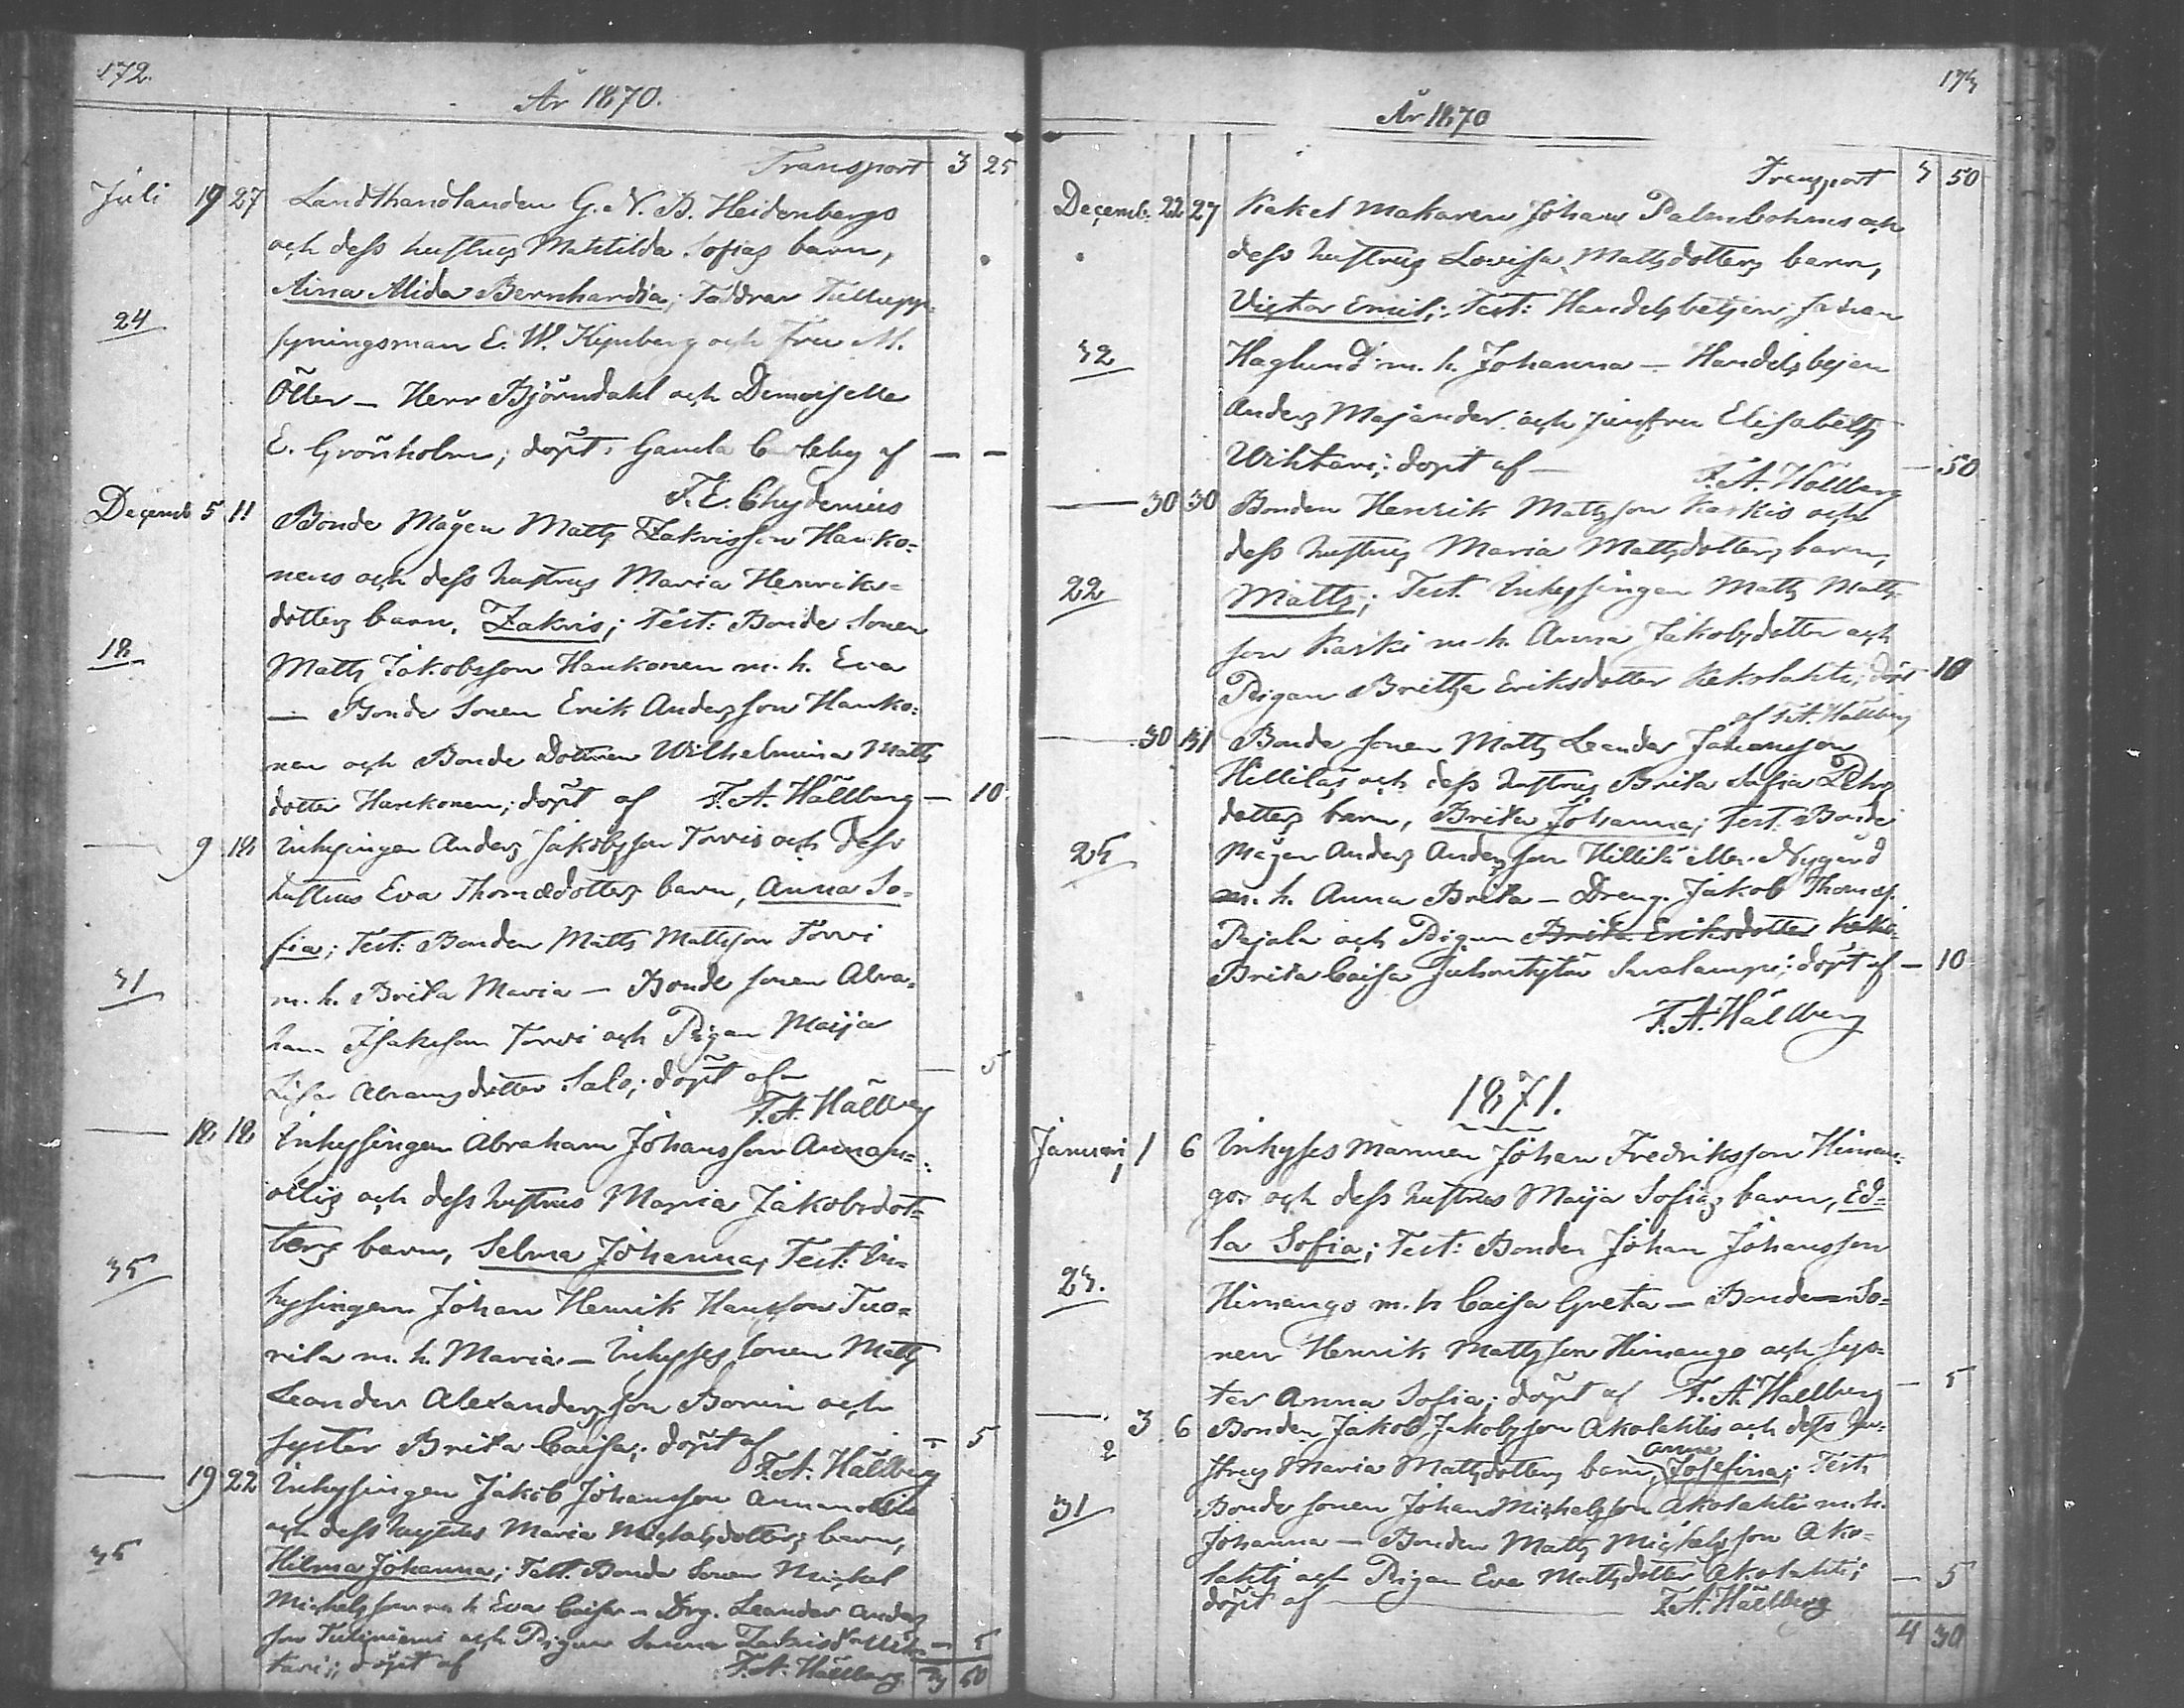 172.
År 1870.
Transport 3 25
Juli 19 27 Landthandlanden G. N. B. Heidenbergs
och dess hustrus Mathilda Sofias barn,
Aina Alida Bernhardia; Faddrar
24
syningsman E. W. Kynberg och Fru M.
Öller — Herr Björndahl och Demoiselle
E. Grönholm; döpt i Gamla Carleby af — —
F. E. Chydenius
Decemb 5 11 Bonde Mågen Matts Zakrisson Hanko-
nens och dess hustrus Maria Henriks-
dotters barn, Zakris; Test: Bonde Sonen
18
Matts Jakobsson Hankonen m. h. Eva
— Bonde Sonen Erik Andersson Hanko-
nen och Bonde Dottren Wilhelmina Matts
dotter Hankonen; döpt af F. A. Hällberg — 10
— 9 18 Inhysingen Anders Jakobsson Torvis och dess
hustrus Eva Thomædotters barn, Anna So-
fia; Test: Bonden Matts Mattsson Torvi
31
m. h. Brita Maria — Bonde sonen Abra-
ham Isaksson Torvi och Pigan Maija
Lisa Abramsdotter Salo; döpt af — 5
F. A. Hällberg
— 18 18 Inhysingen Abraham Johansson Annan-
ollis och dess hustrus Maria Jakobsdot-
ters barn, Selma Johanna; Test: In-
35
hysingen Johan Henrik Hansson Tuo-
rila m. h. Maria — Inhysses sonen Matts
Leander Alexandersson Bonin och
syster Brita Caisa; döpt af — 5
F. A. Hällberg
— 19 22 Inhysingen Jakob Johansson Annanollis
och dess hustrus Maria Michelsdotters barn,
35
Hilma Johanna; Test. Bonde Sonen Michel
Michelsson m h Eva Caisa — Drg. Leander Anders
son och Pigan Sanna Zakrisdr — 5
döpt af F. A. Hällberg 3 50
173
År 1870
Transport 3 50
Decemb. 22 27 Kakel Makaren Johan Palmbohms och
dess hustrus Lovisa Mattsdotters barn,
Victor Emil; Test: Handelsbetjen Johan
32
Haglund m. h. Johanna — Handelsbejen
Anders Majander och Jungfru Elisabeth
döpt af — — 50
F. A. Hällberg
— 30 30 Bonden Henrik Mattsson Karkis och
dess hustrus Maria Mattsdotters barn,
22
Matts; Test. Inhysingen Matts Matts
son Karki m. h. Anna Jakobsdotter och
Pigan Britha Eriksdotter Kekolahti; döpt 10
af F. A. Hällberg
— 30 31 Bonde sonen Matts Leander Johansson
Hillilas och dess hustrus Brita Sofia Pehrs
dotters barn, Brita Johanna; Test. Bonde
25
Mågen Anders Andersson Hillilä eller Nygård
m. h. Anna Brita — Dreng. Jakob Thomæs.
Pajala och Pigan Brita Eriksdotter Keko-
Brita Caisa döpt af — 10
F. A. Hällberg
1871.
Januari 1 6 Inhysses Mannen Johan Fredriksson Himan-
gos och dess hustrus Maija Sofias barn, Ed-
la Sofia; Test: Bonden Johan Johansson
23.
Himango m. h Caisa Greta — Bonde So-
nen Henrik Mattsson Himango och sys-
ter Anna Sofia; döpt af F. A. Hällberg — 5
— 3 6 Bonden Jakob Jakobsson Akolahtis och dess hu-
2
strus Maria Mattsdotters barn, Anna Josefina; Test.
31
Bonde sonen Johan Michelsson Akolahti m. h.
Johanna — Bonden Matts Michelsson Ako-
lahti och Pigan Eva Mattsdotter Akolahti; — 5
döpt af — F. A. Hällberg
4 30